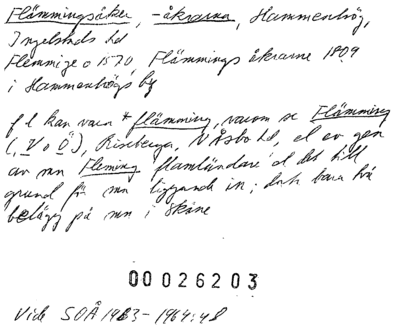 Flämmingsåker, -åkrarna, Hammenhög,
Ingelstads hd
Flemmige o 1570, Flämmings åkrarne 1809
i Hammenhögs by
f l kan vara * flämming, varom se Flämming
(, V o Ö), Riseberga, N Åsbo hd, el av gen
av mn Fleming flamländare el det till
grund för mn liggande in; dock bara två
belägg på mn i Skåne
00026203
Vide SOÅ 1963-1964:48